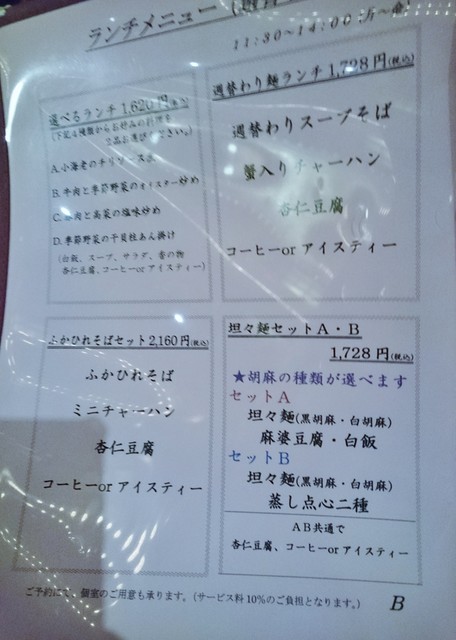 ランチメニュー
11:30～14:00
選べるランチ 1,620円(税込)
(下記4種類からお好みの料理を
2品お選びください。)
A.小海老のチリソース
B.牛肉と季節野菜のオイスター炒め
肉と高菜の塩味炒め
D.季節野菜の干貝柱あん掛け
(白飯、スープ、サラダ、香の物
杏仁豆腐、コーヒーorアイスティー)
週替わり麺ランチ 1,728円(税込)
週替わりスープそば
蟹入りチャーハン
杏仁豆腐
コーヒーorアイスティー
ふかひれそばセット2,160円(税込)
ふかひれそば
ミニチャーハン
杏仁豆腐
コーヒーorアイスティー
坦々麺セットA・B
1,728円(税込)
★胡麻の種類が選べます
セットA
坦々麺(黒胡麻・白胡麻)
麻婆豆腐・白飯
セットB
坦々麺(黒胡麻・白胡麻)
蒸し点心二種
AB共通で
杏仁豆腐、コーヒーorアイスティー
ご予約にて、個室のご用意も承ります。(サービス料10%のご負担となります。)
B